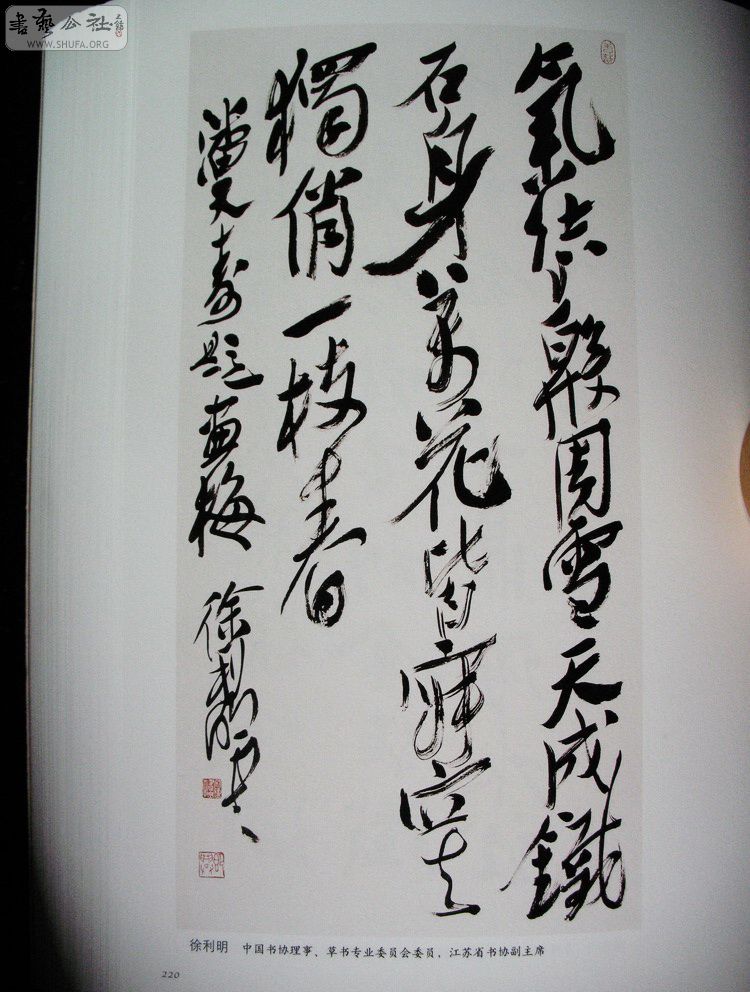 書藝公社
WWW.SHUFA.ORG
氣結殷周雪天成鐵
石身萬花皆寂寞
獨俏一枝春
潘天壽題畫梅 徐利明
徐利明 中国书协理事、草书专业委员会委员，江苏省书协副主席
220